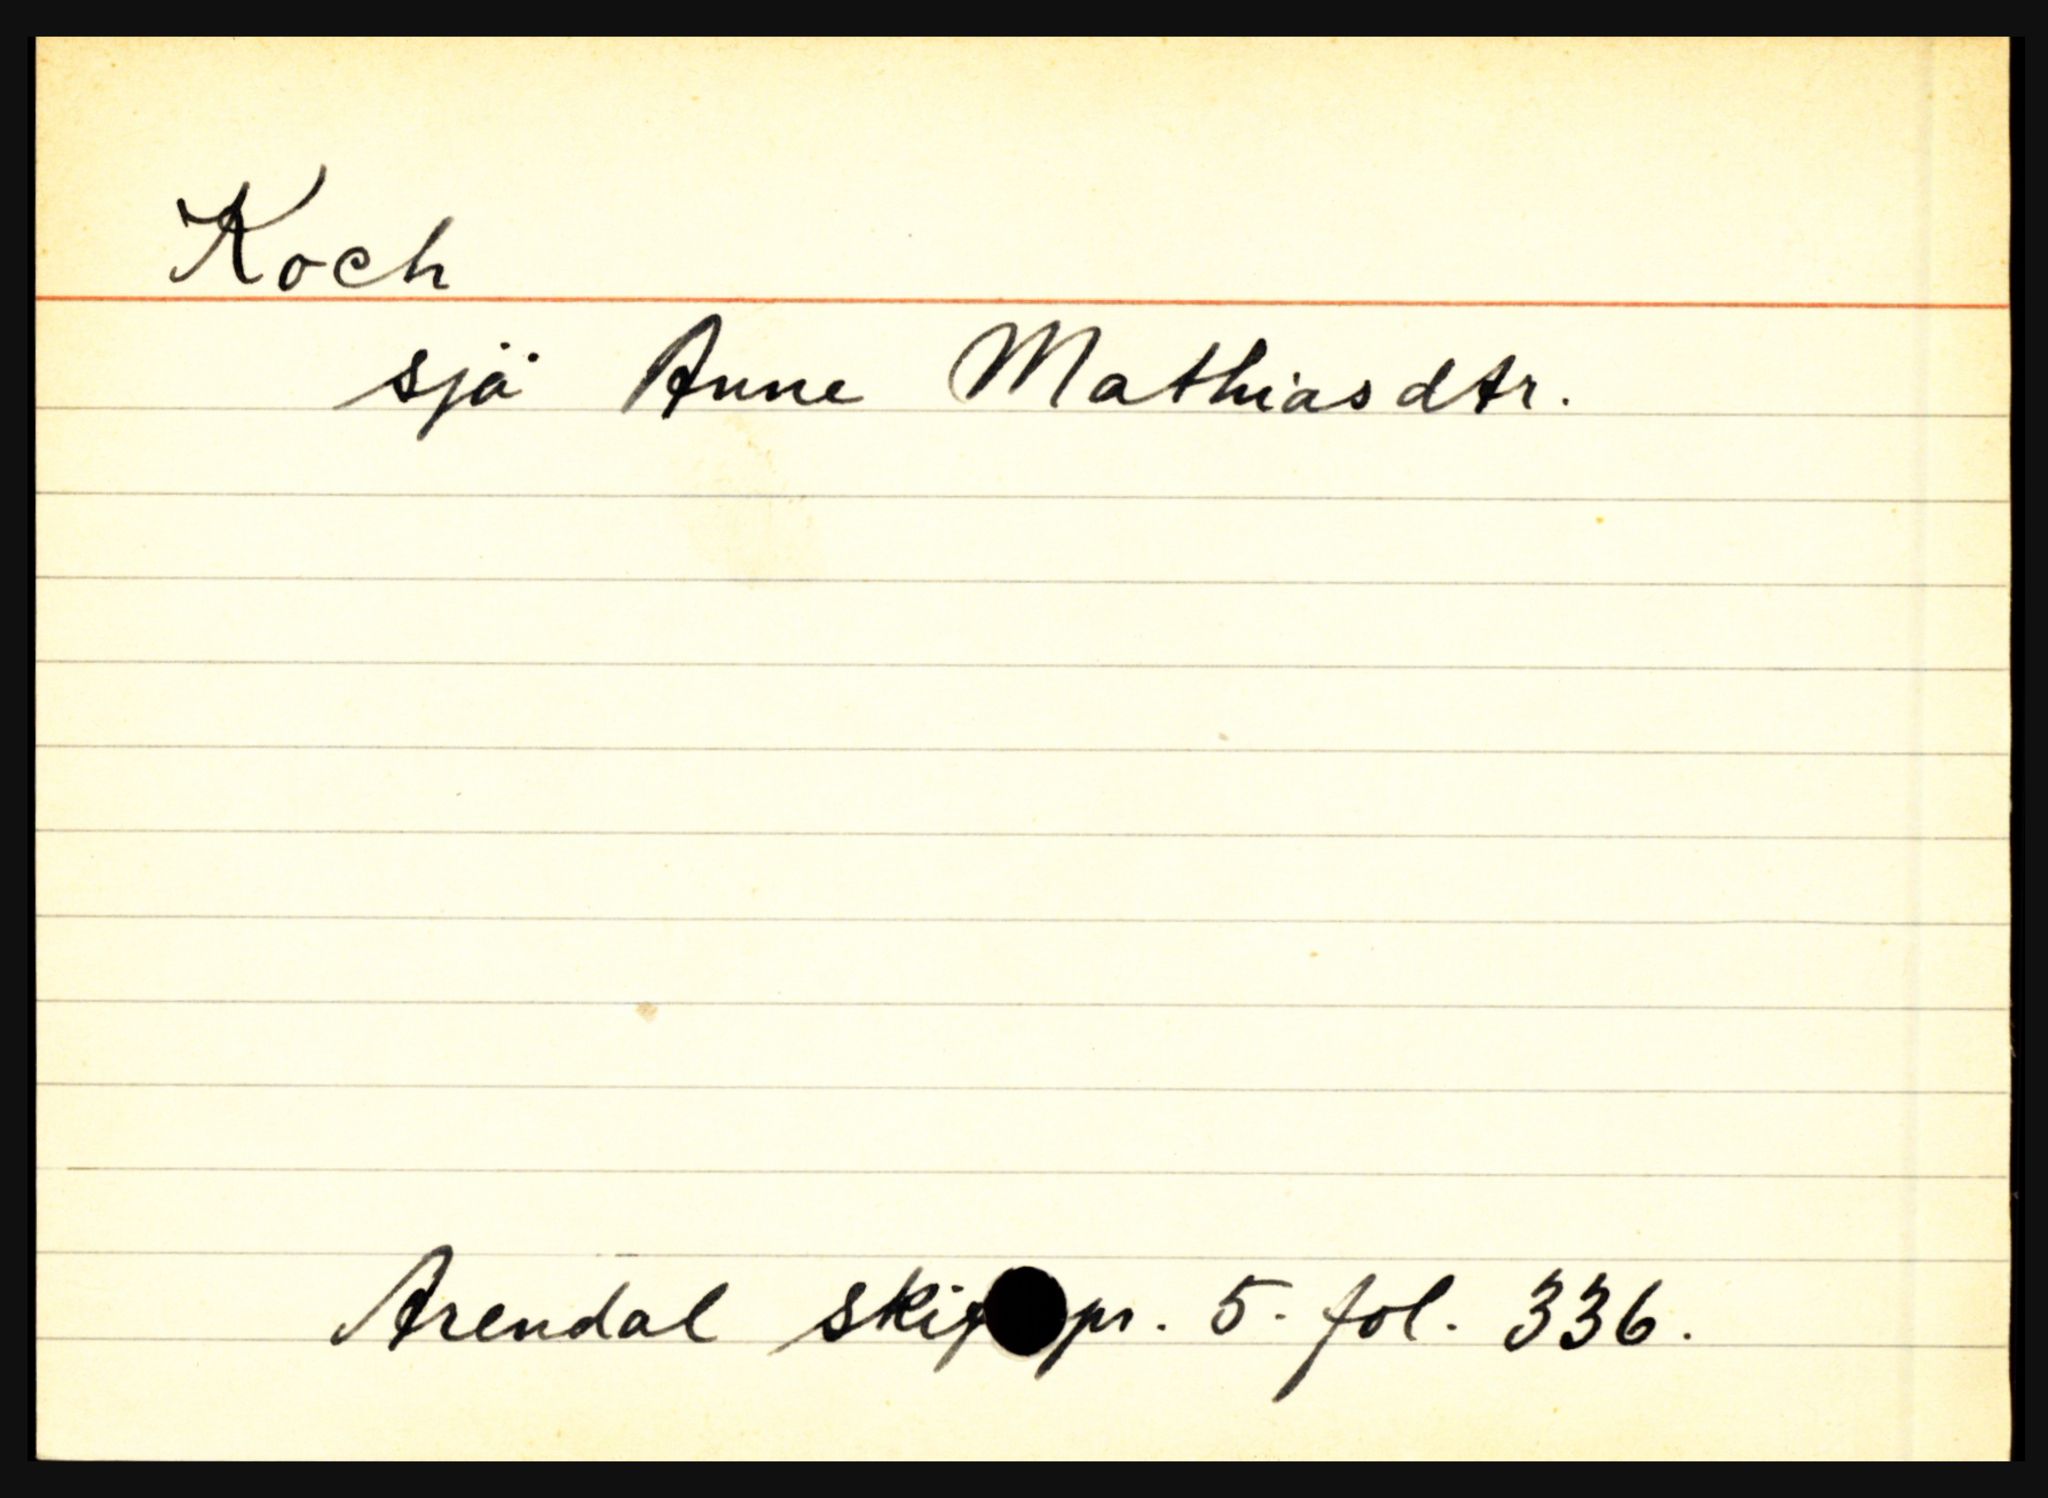 Koch
sjå Anne Mathiasdtr.
Arendal skif pr. 5. fol. 336.